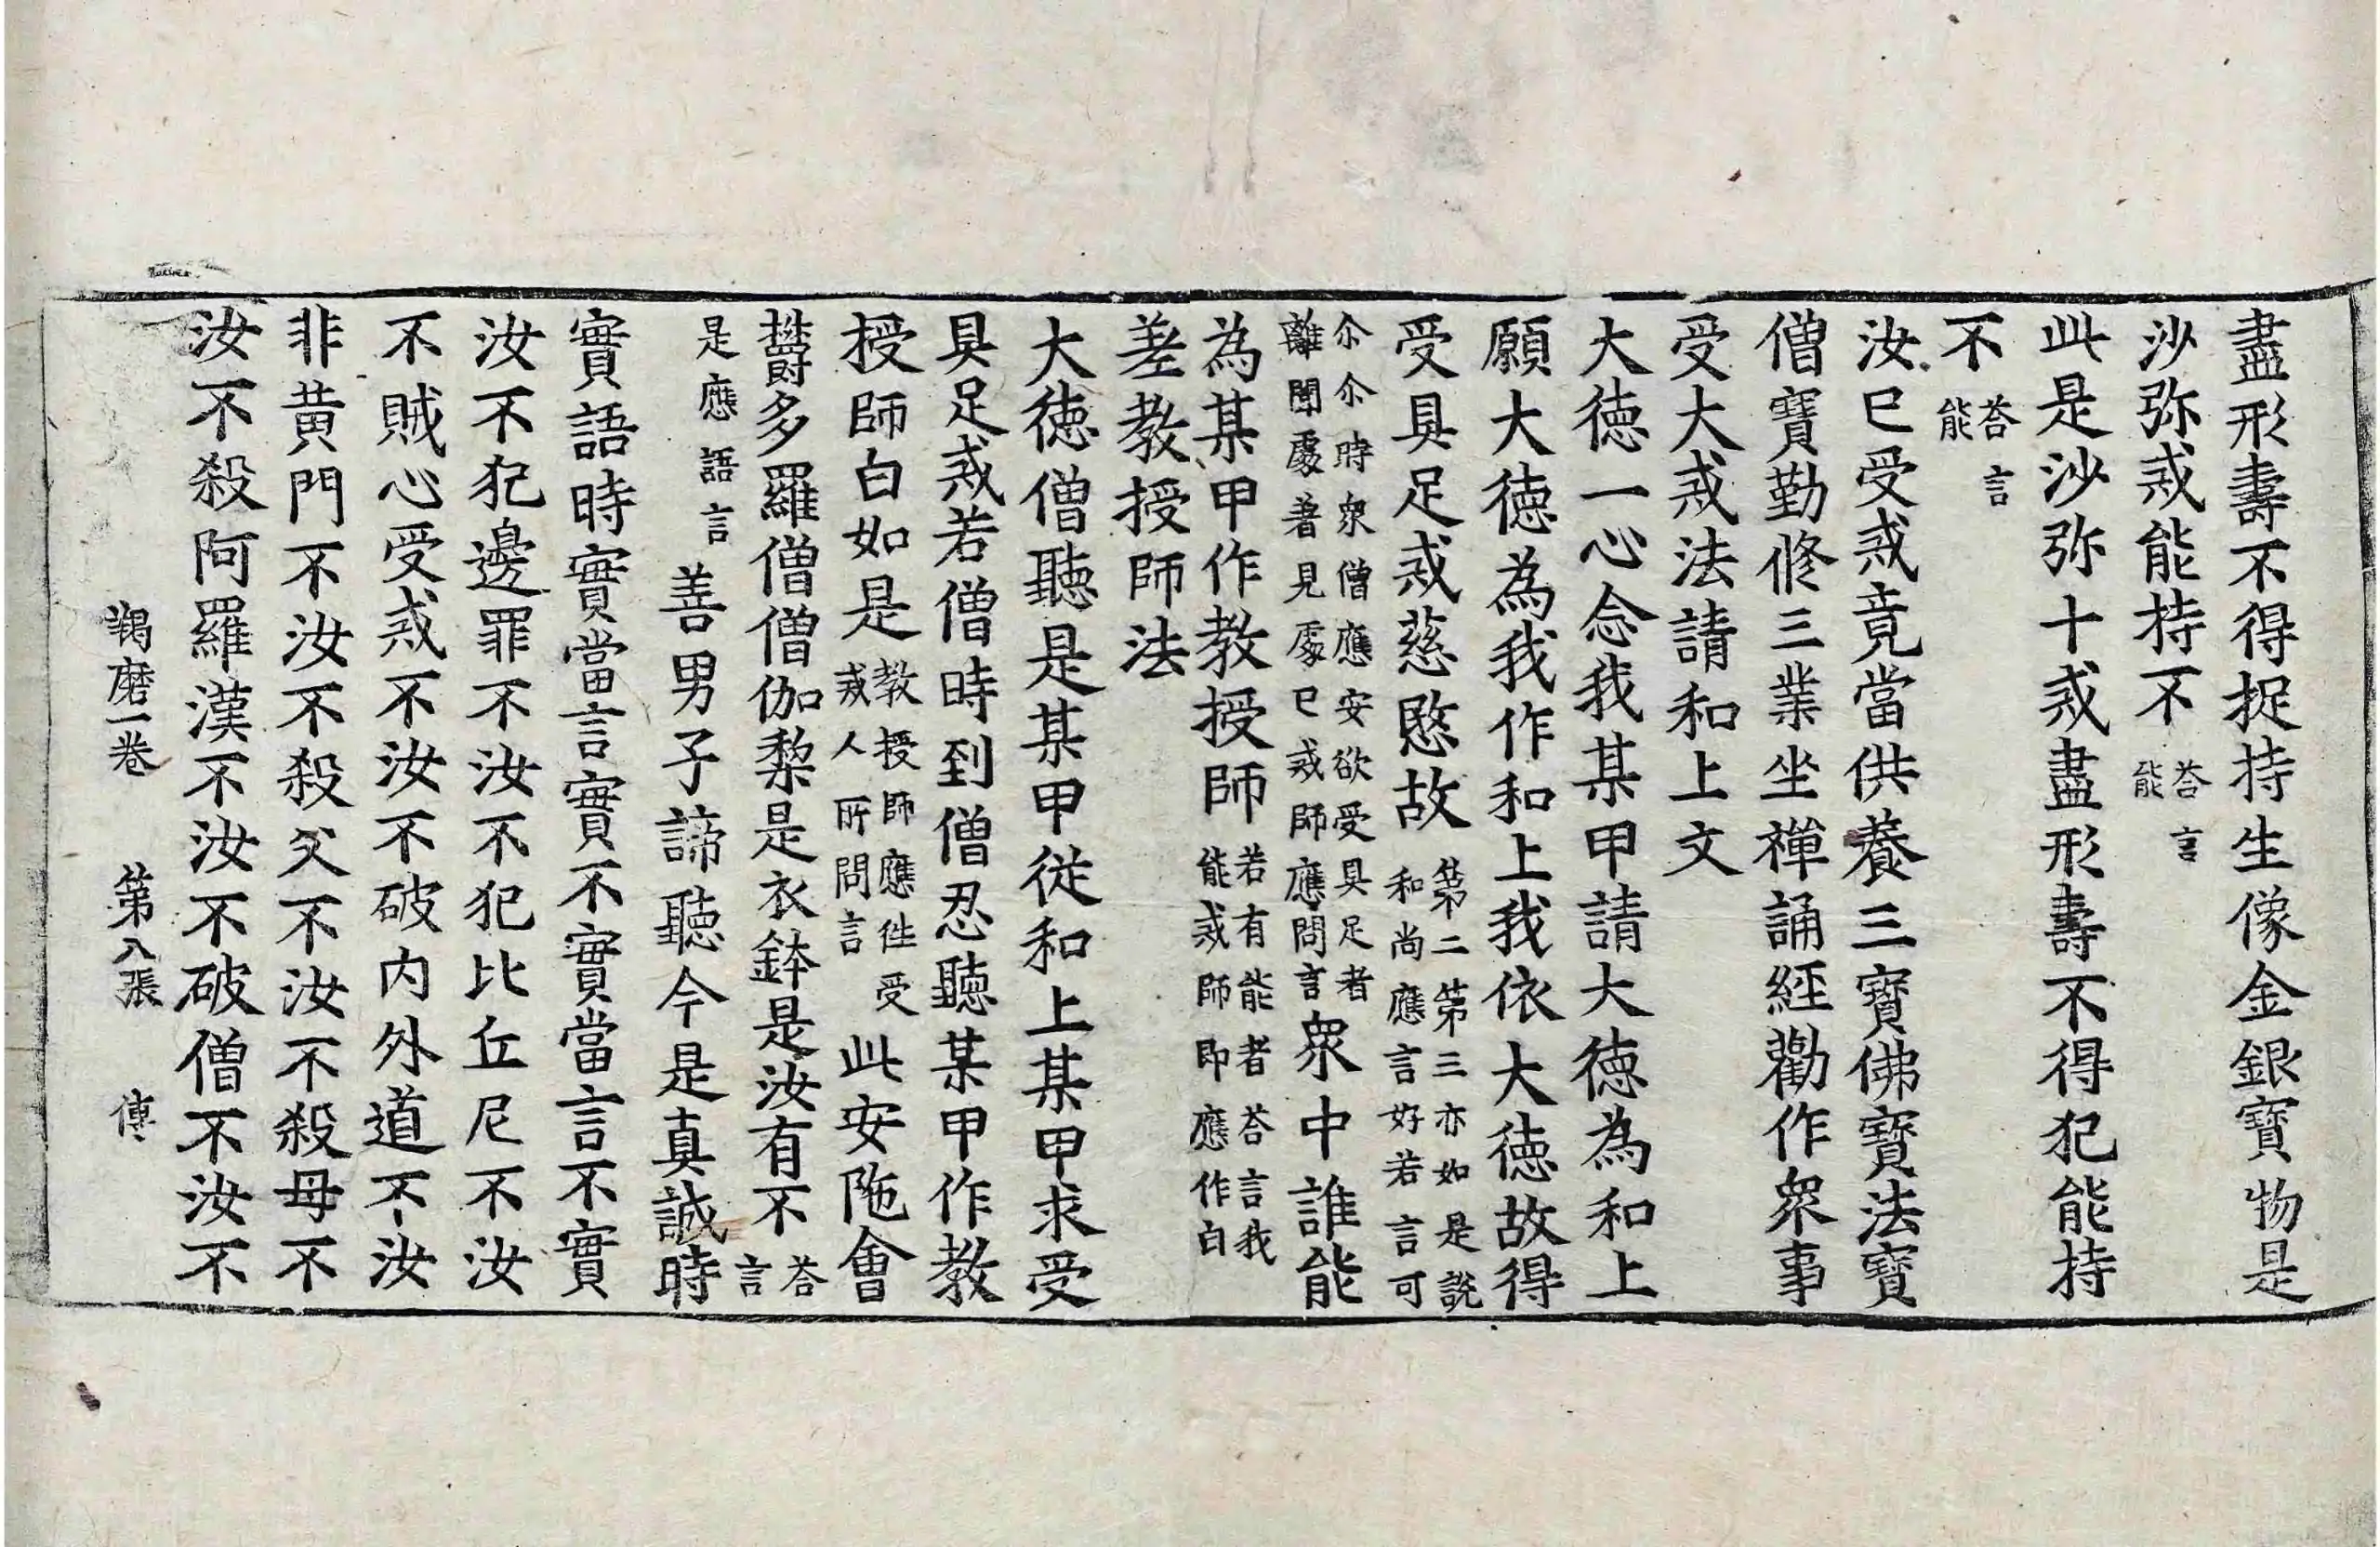 盡形壽不得捉持生像金銀寶物是
沙弥戒能持不 荅言能
此是沙弥十戒盡形壽不得犯能持
不 荅言能
汝已受戒竟當供養三寶佛寶法寶
僧寶勤修三業坐禪誦經勸作衆事
受大戒法請和上文
大德一心念我某甲請大德為和上
願大德為我作和上我依大德故得
受具足戒慈愍故 第二第三亦如是說和尚應言好若言可
尒尒時衆僧應安欲受具足者離聞處著見處已戒師應問言衆中誰能
為某甲作教授師 若有能者荅言我能戒師即應作白
差教授師法
大德僧聽是某甲從和上某甲求受
具足戒若僧時到僧忍聽某甲作教
授師白如是 教授師應往受戒人所問言 此安陁會
欝多羅僧僧伽梨是衣鉢是汝有不 荅言
是應語言 善男子諦聽今是真誠時
實語時實當言實不實當言不實
汝不犯邊罪不汝不犯比丘尼不汝
不賊心受戒不汝不破内外道不汝
非黄門不汝不殺父不汝不殺母不
汝不殺阿羅漢不汝不破僧不汝不
羯磨一卷 第八張 傳